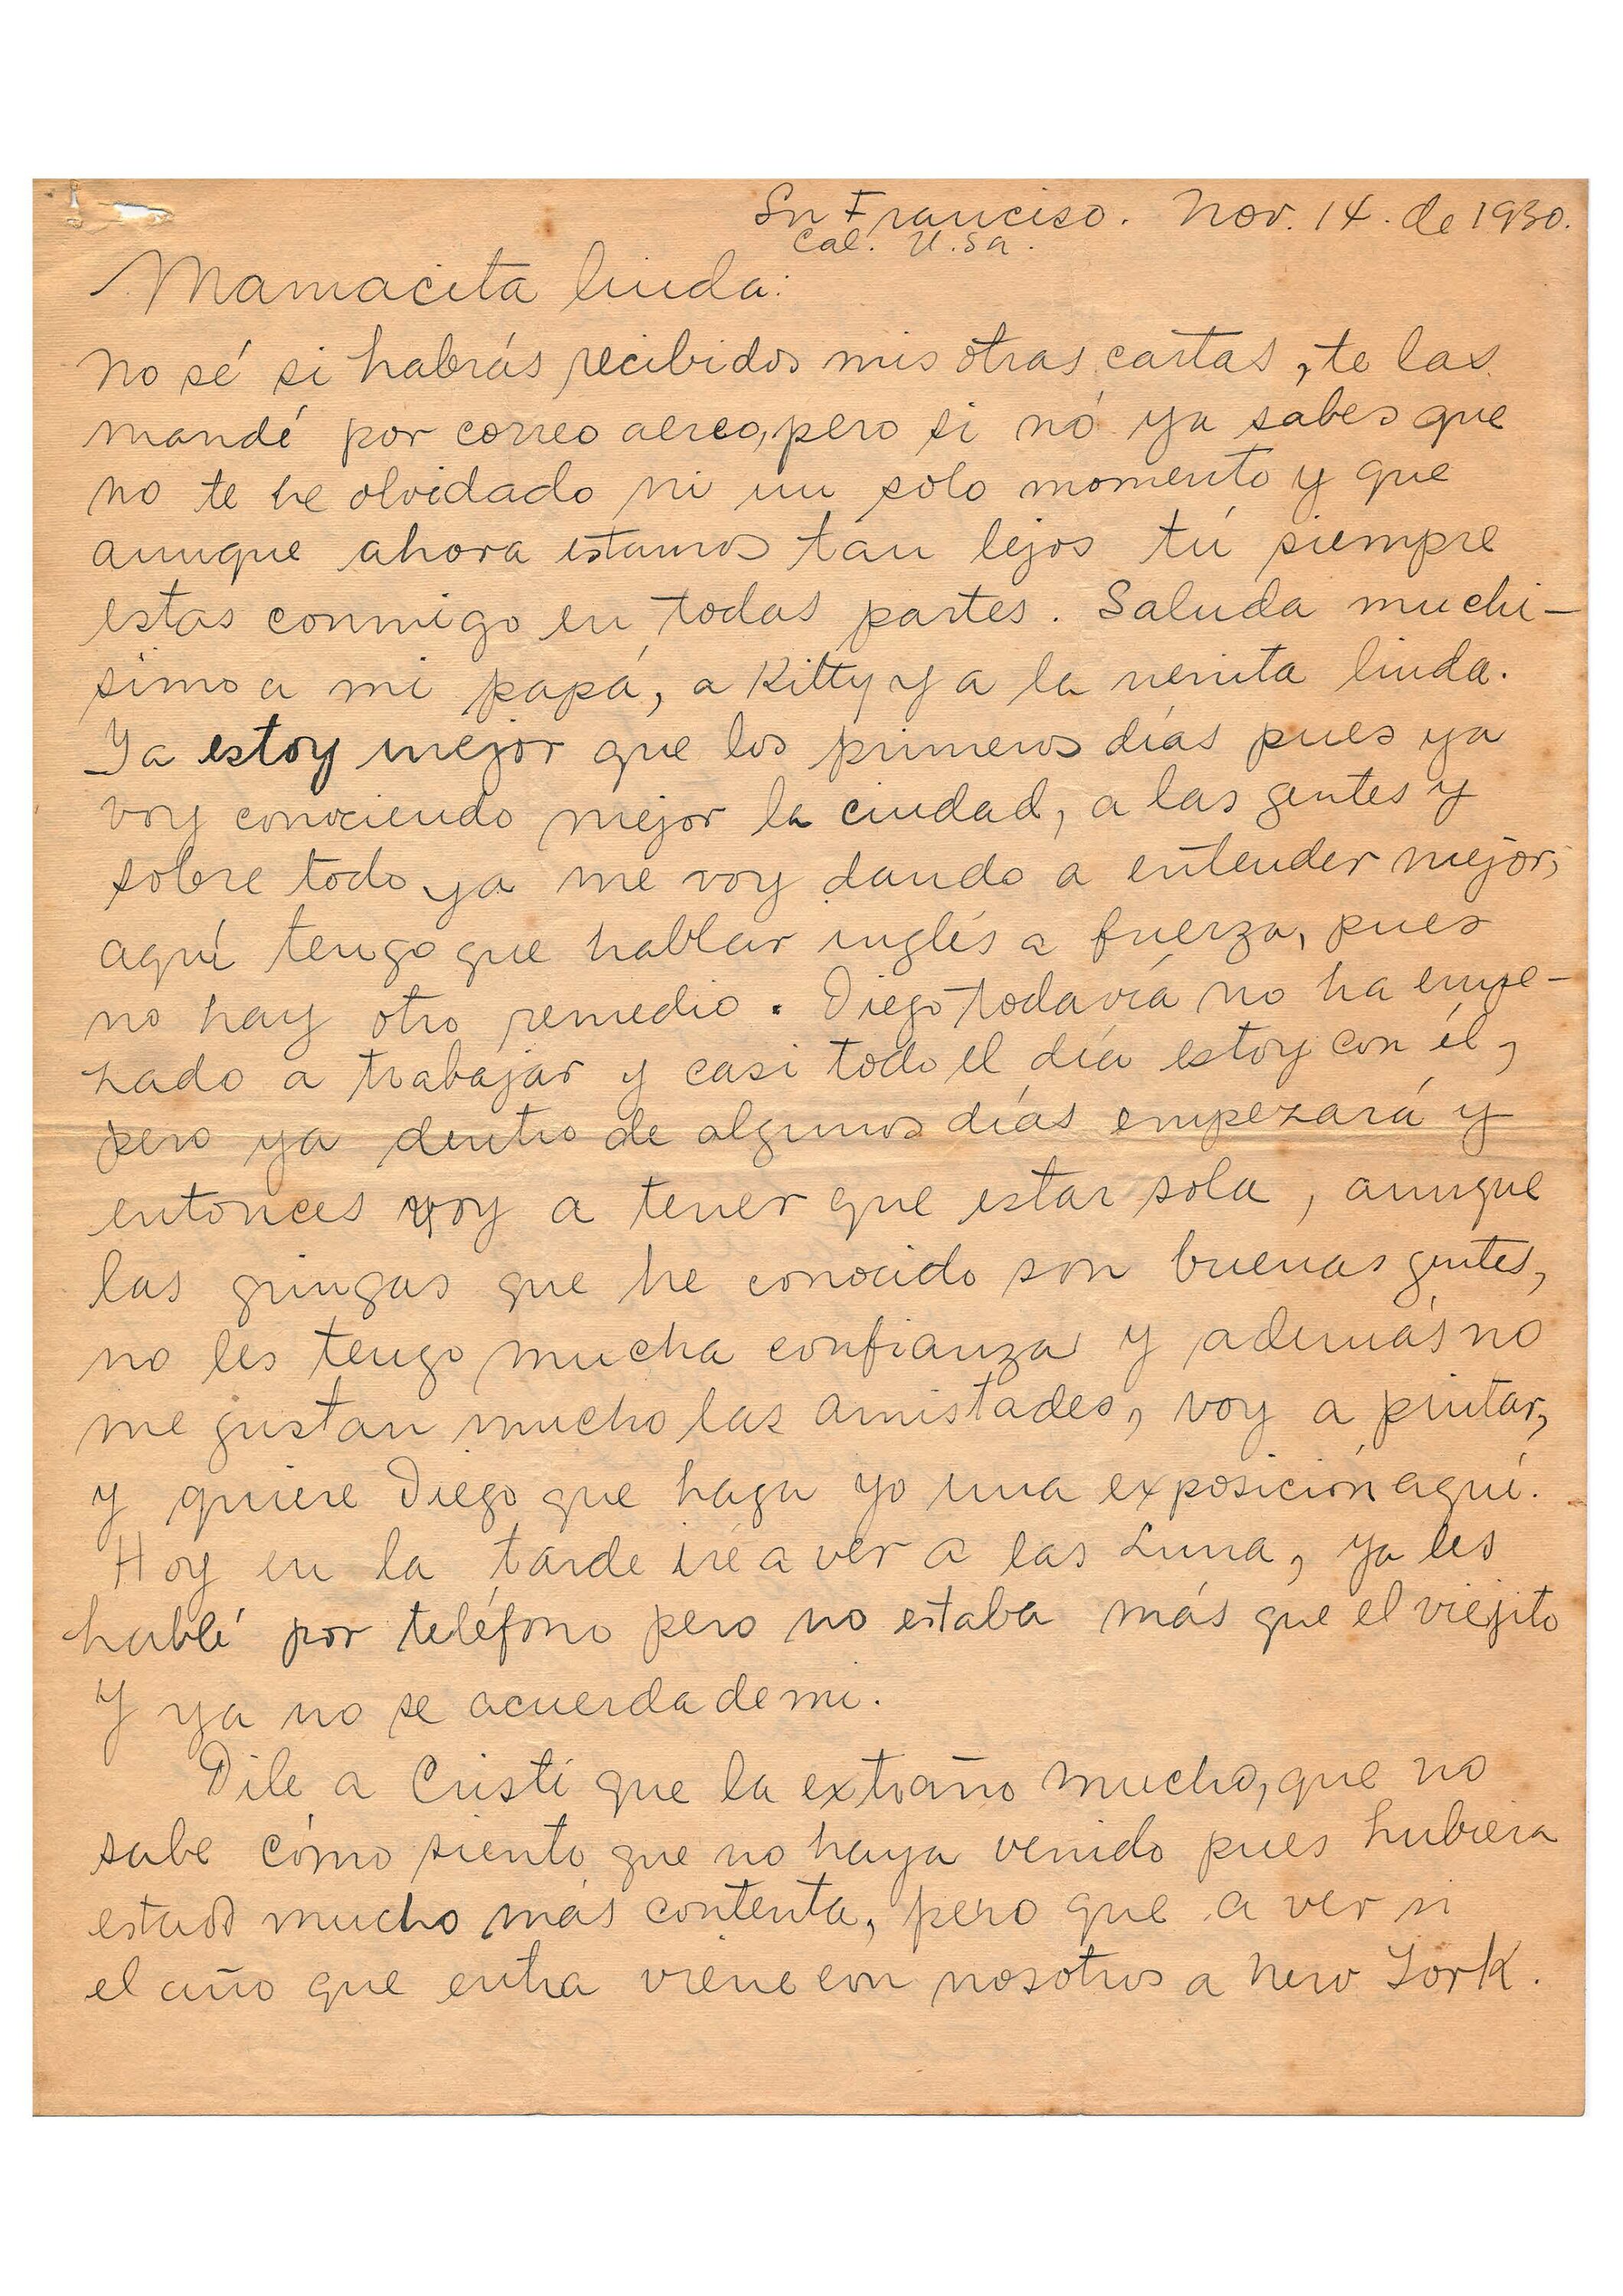 Sn Franciso. Nov. 14. de 1930.
Cal. U.Sa.
Mamacita linda:
No sé si habrás recibidos mis otras cartas, te las
mandé por correo aereo, pero si nó ya sabes que
no te he olvidado ni un solo momento y que
aunque ahora estamos tan lejos tú siempre
estas conmigo en todas partes. Saluda muchi-
simo a mi papá, a Kitty y a la nenita linda.
Ya estoy mejor que los primeros días pues ya
voy conociendo mejor la ciudad, a las gentes y
sobre todo ya me voy dando a entender mejor;
aquí tengo que hablar inglés a fuerza, pues
no hay otro remedio. Diego todavía no ha empe-
zado a trabajar y casi todo el día estoy con él,
pero ya dentro de algunos días empezará y
entonces voy a tener que estar sola, aunque
las gringas que he conocido son buenas gentes,
no les tengo mucha confianza y además no
me gustan mucho las amistades, voy a pintar,
y quiere Diego que haga yo una exposición aquí.
Hoy en la tarde iré a ver a las Luna, ya les
hablé por teléfono pero no estaba más que el viejito
y ya no se acuerda de mi.
Dile a Cristi que la extraño mucho, que no
sabe cómo siento que no haya venido pues hubiera
estado mucho más contenta, pero que a ver si
el año que entra viene con nosotros a New York.